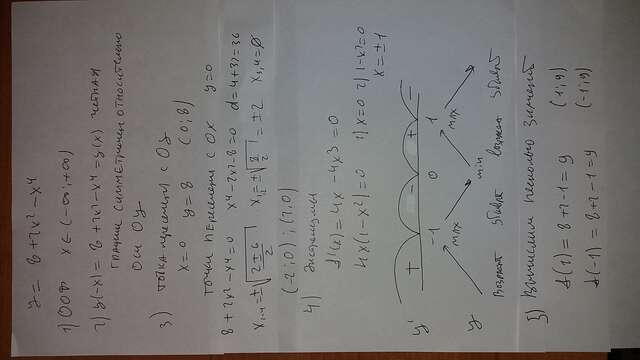 y = 8 + 2x² - x⁴
1) ООФ x ∈ (-∞; +∞)
2) y(-x) = 8 + 2x² - x⁴ = y(x) четная
график симметричен относительно
оси Oy
3) точка пересечен с Oy
x = 0 y = 8 (0; 8)
точки пересечен с OX y = 0
8 + 2x² - x⁴ = 0 x⁴ - 2x² - 8 = 0 d = 4 + 32 = 36
x₁₋₄ = ±√((2 ± 6)/2) x₁,₂ = ±√(8/2) = ±2 x₃,₄ = ∅
(-2; 0); (2; 0)
4) Экстремумы
f'(x) = 4x - 4x³ = 0
4x(1 - x²) = 0 1) x = 0 2) 1 - x² = 0
x = ±1
y' + - + -
-1 0 1
max min max
y
возрастает убывает возрастает убывает
5) Вычислим несколько значений
f(1) = 8 + 2 - 1 = 9 (1; 9)
f(-1) = 8 + 2 - 1 = 9 (-1; 9)